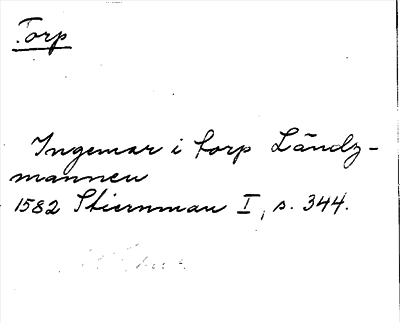 Torp
Ingemar i torp Ländz-
mannen
1582 Stiernman I, s. 344.